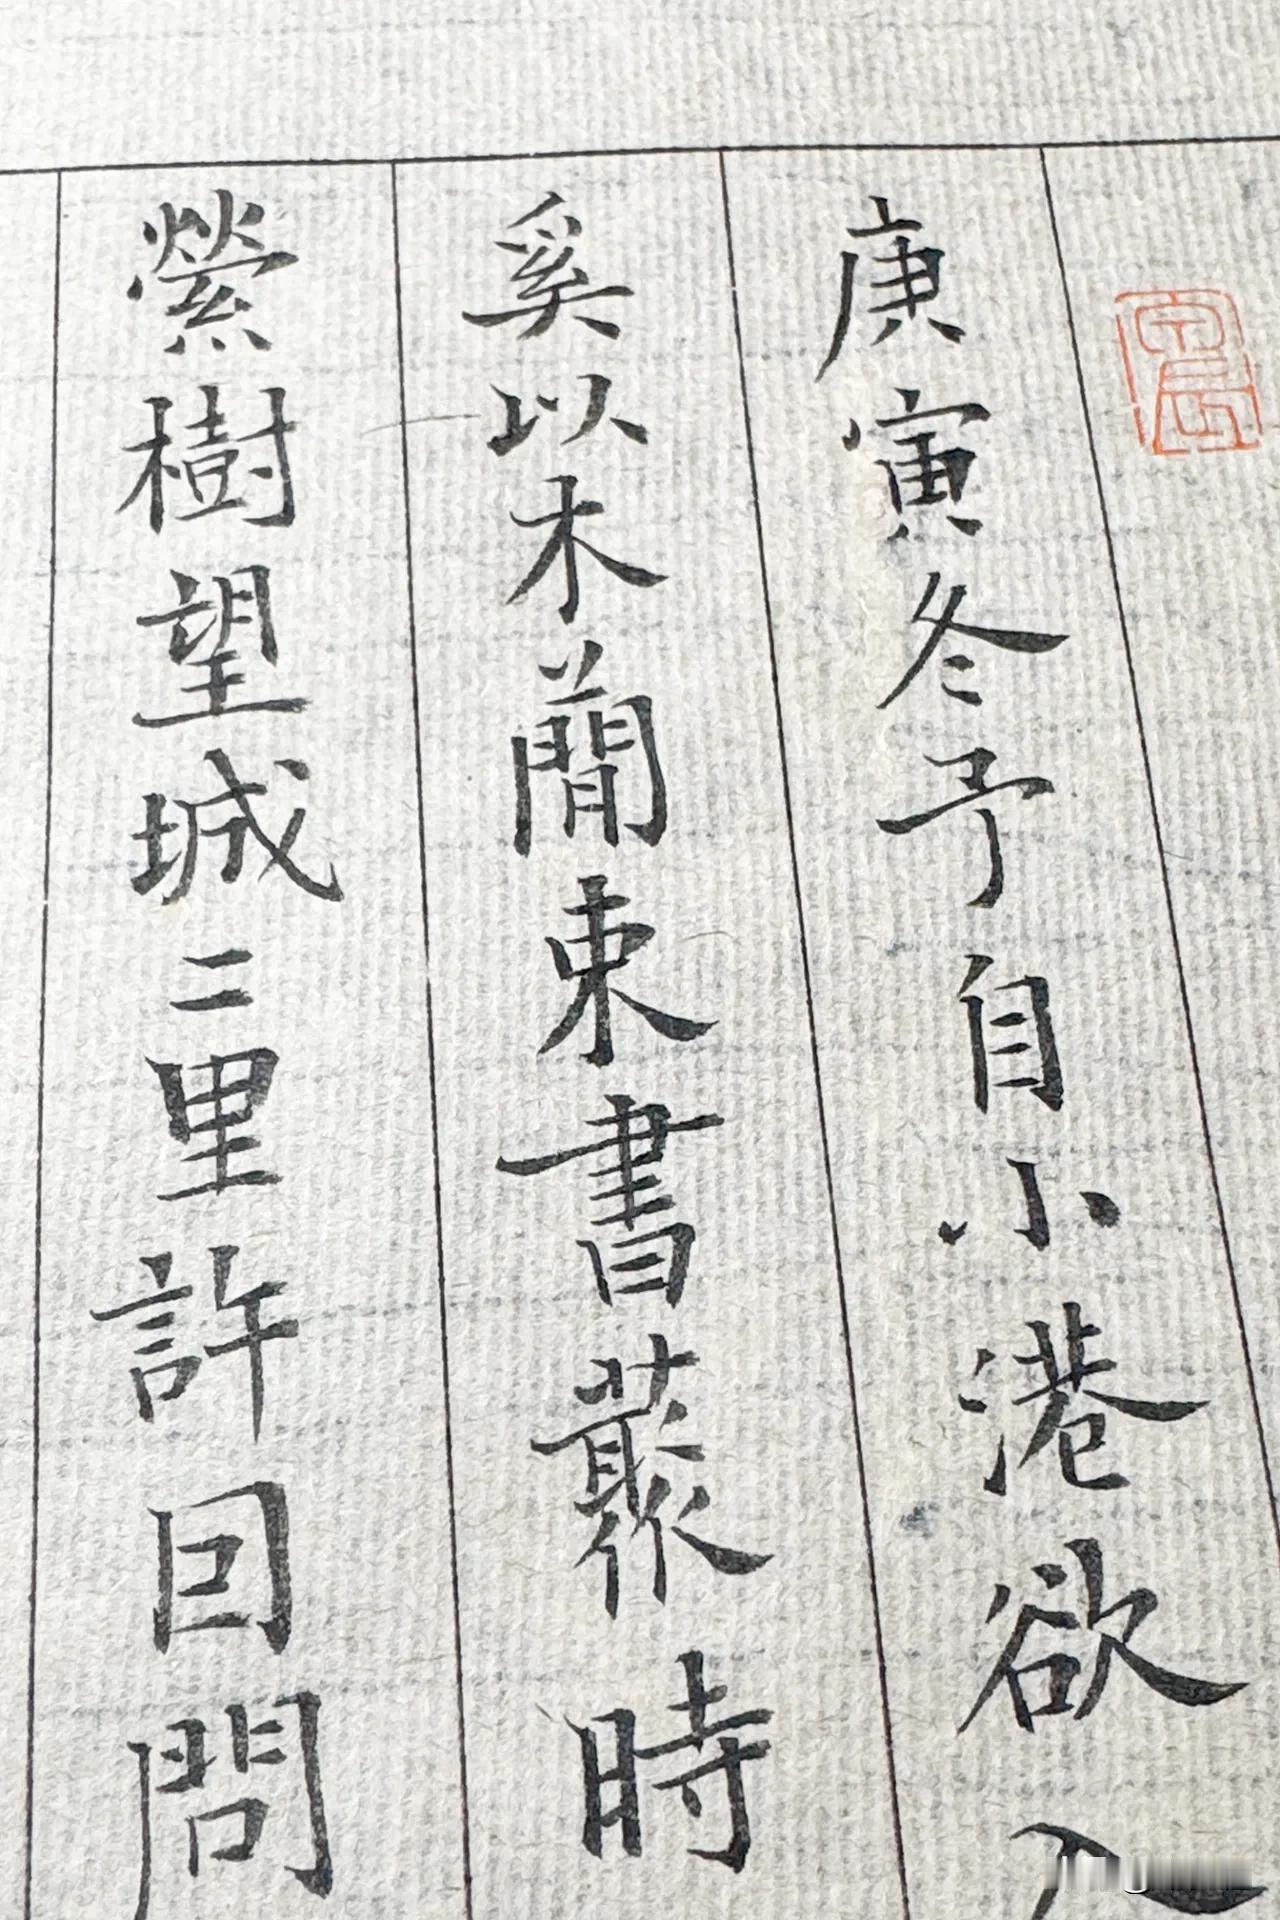 庚寅冬予自小港欲入
奚以木蕳束書藂時
縈樹望城二里許囙問